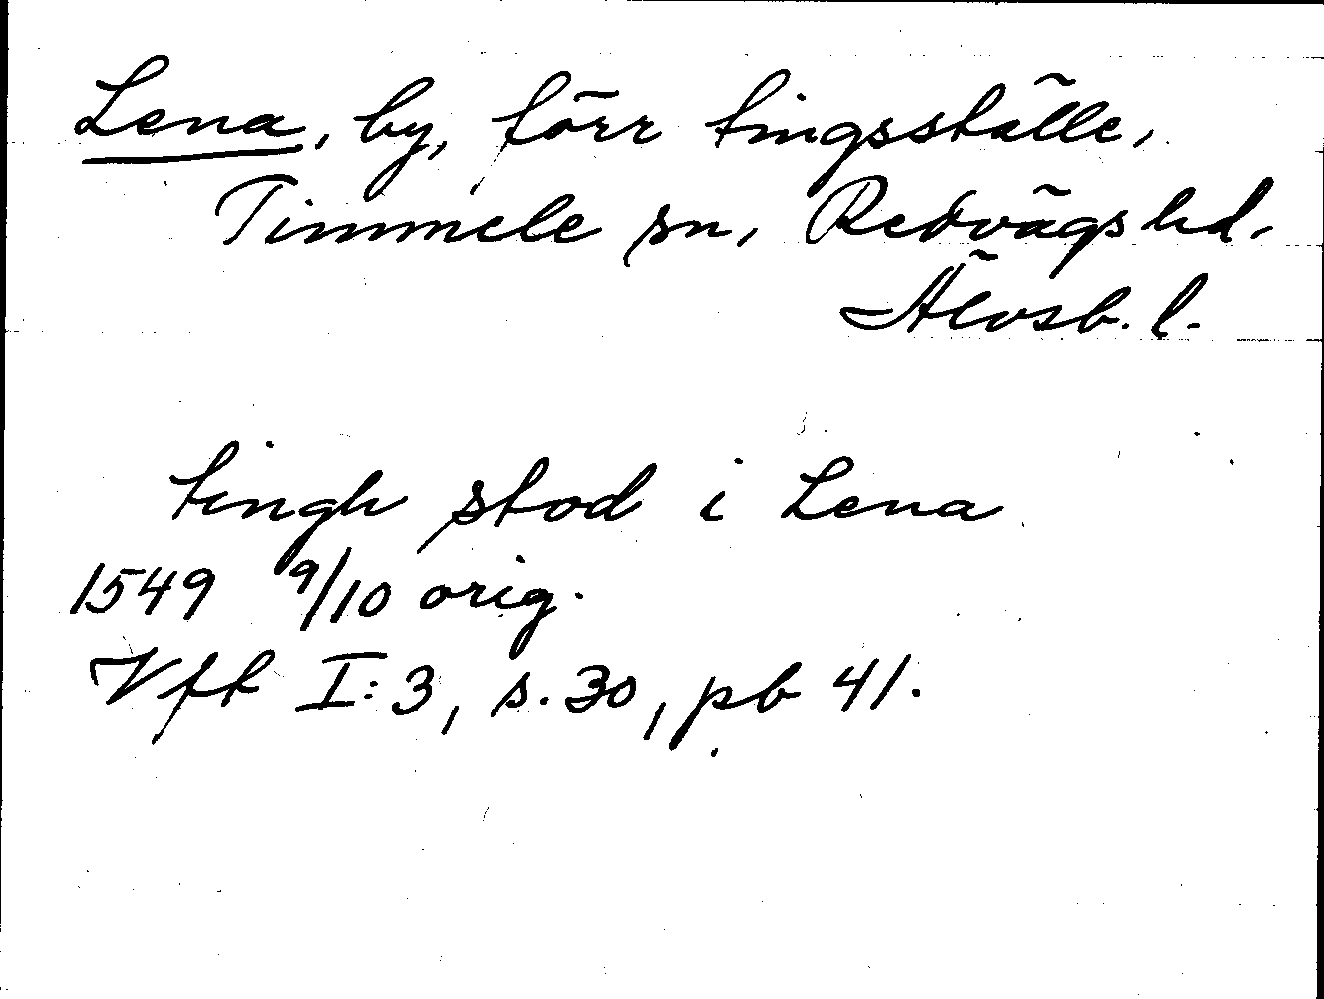 Lena, by, förr tingsställe,
Timmele sn, Redvägs hd,
Älvsb. l.
tingh stod i Lena
1549 9/10 orig.
Vff I:3, s. 30, pb 41.